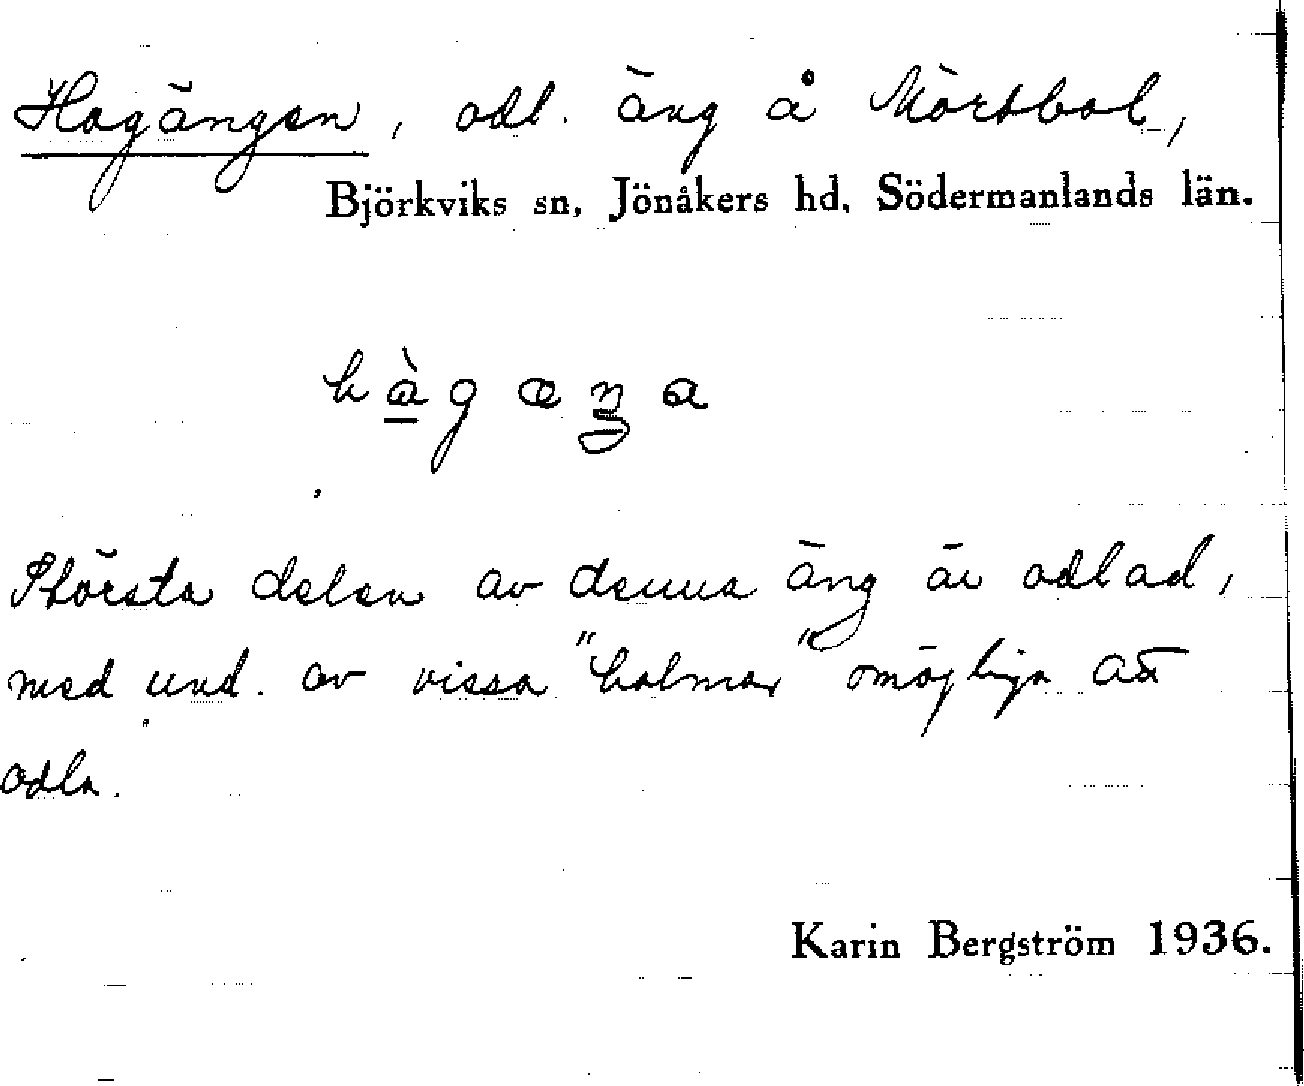 Hagängen, odl. äng å Mörtbol,
Björkviks sn, Jönåkers hd, Södermanlands län.
Största delen av denna äng är odlad,
med und. av vissa "holmar" omöjliga att
odla.
Karin Bergström 1936.